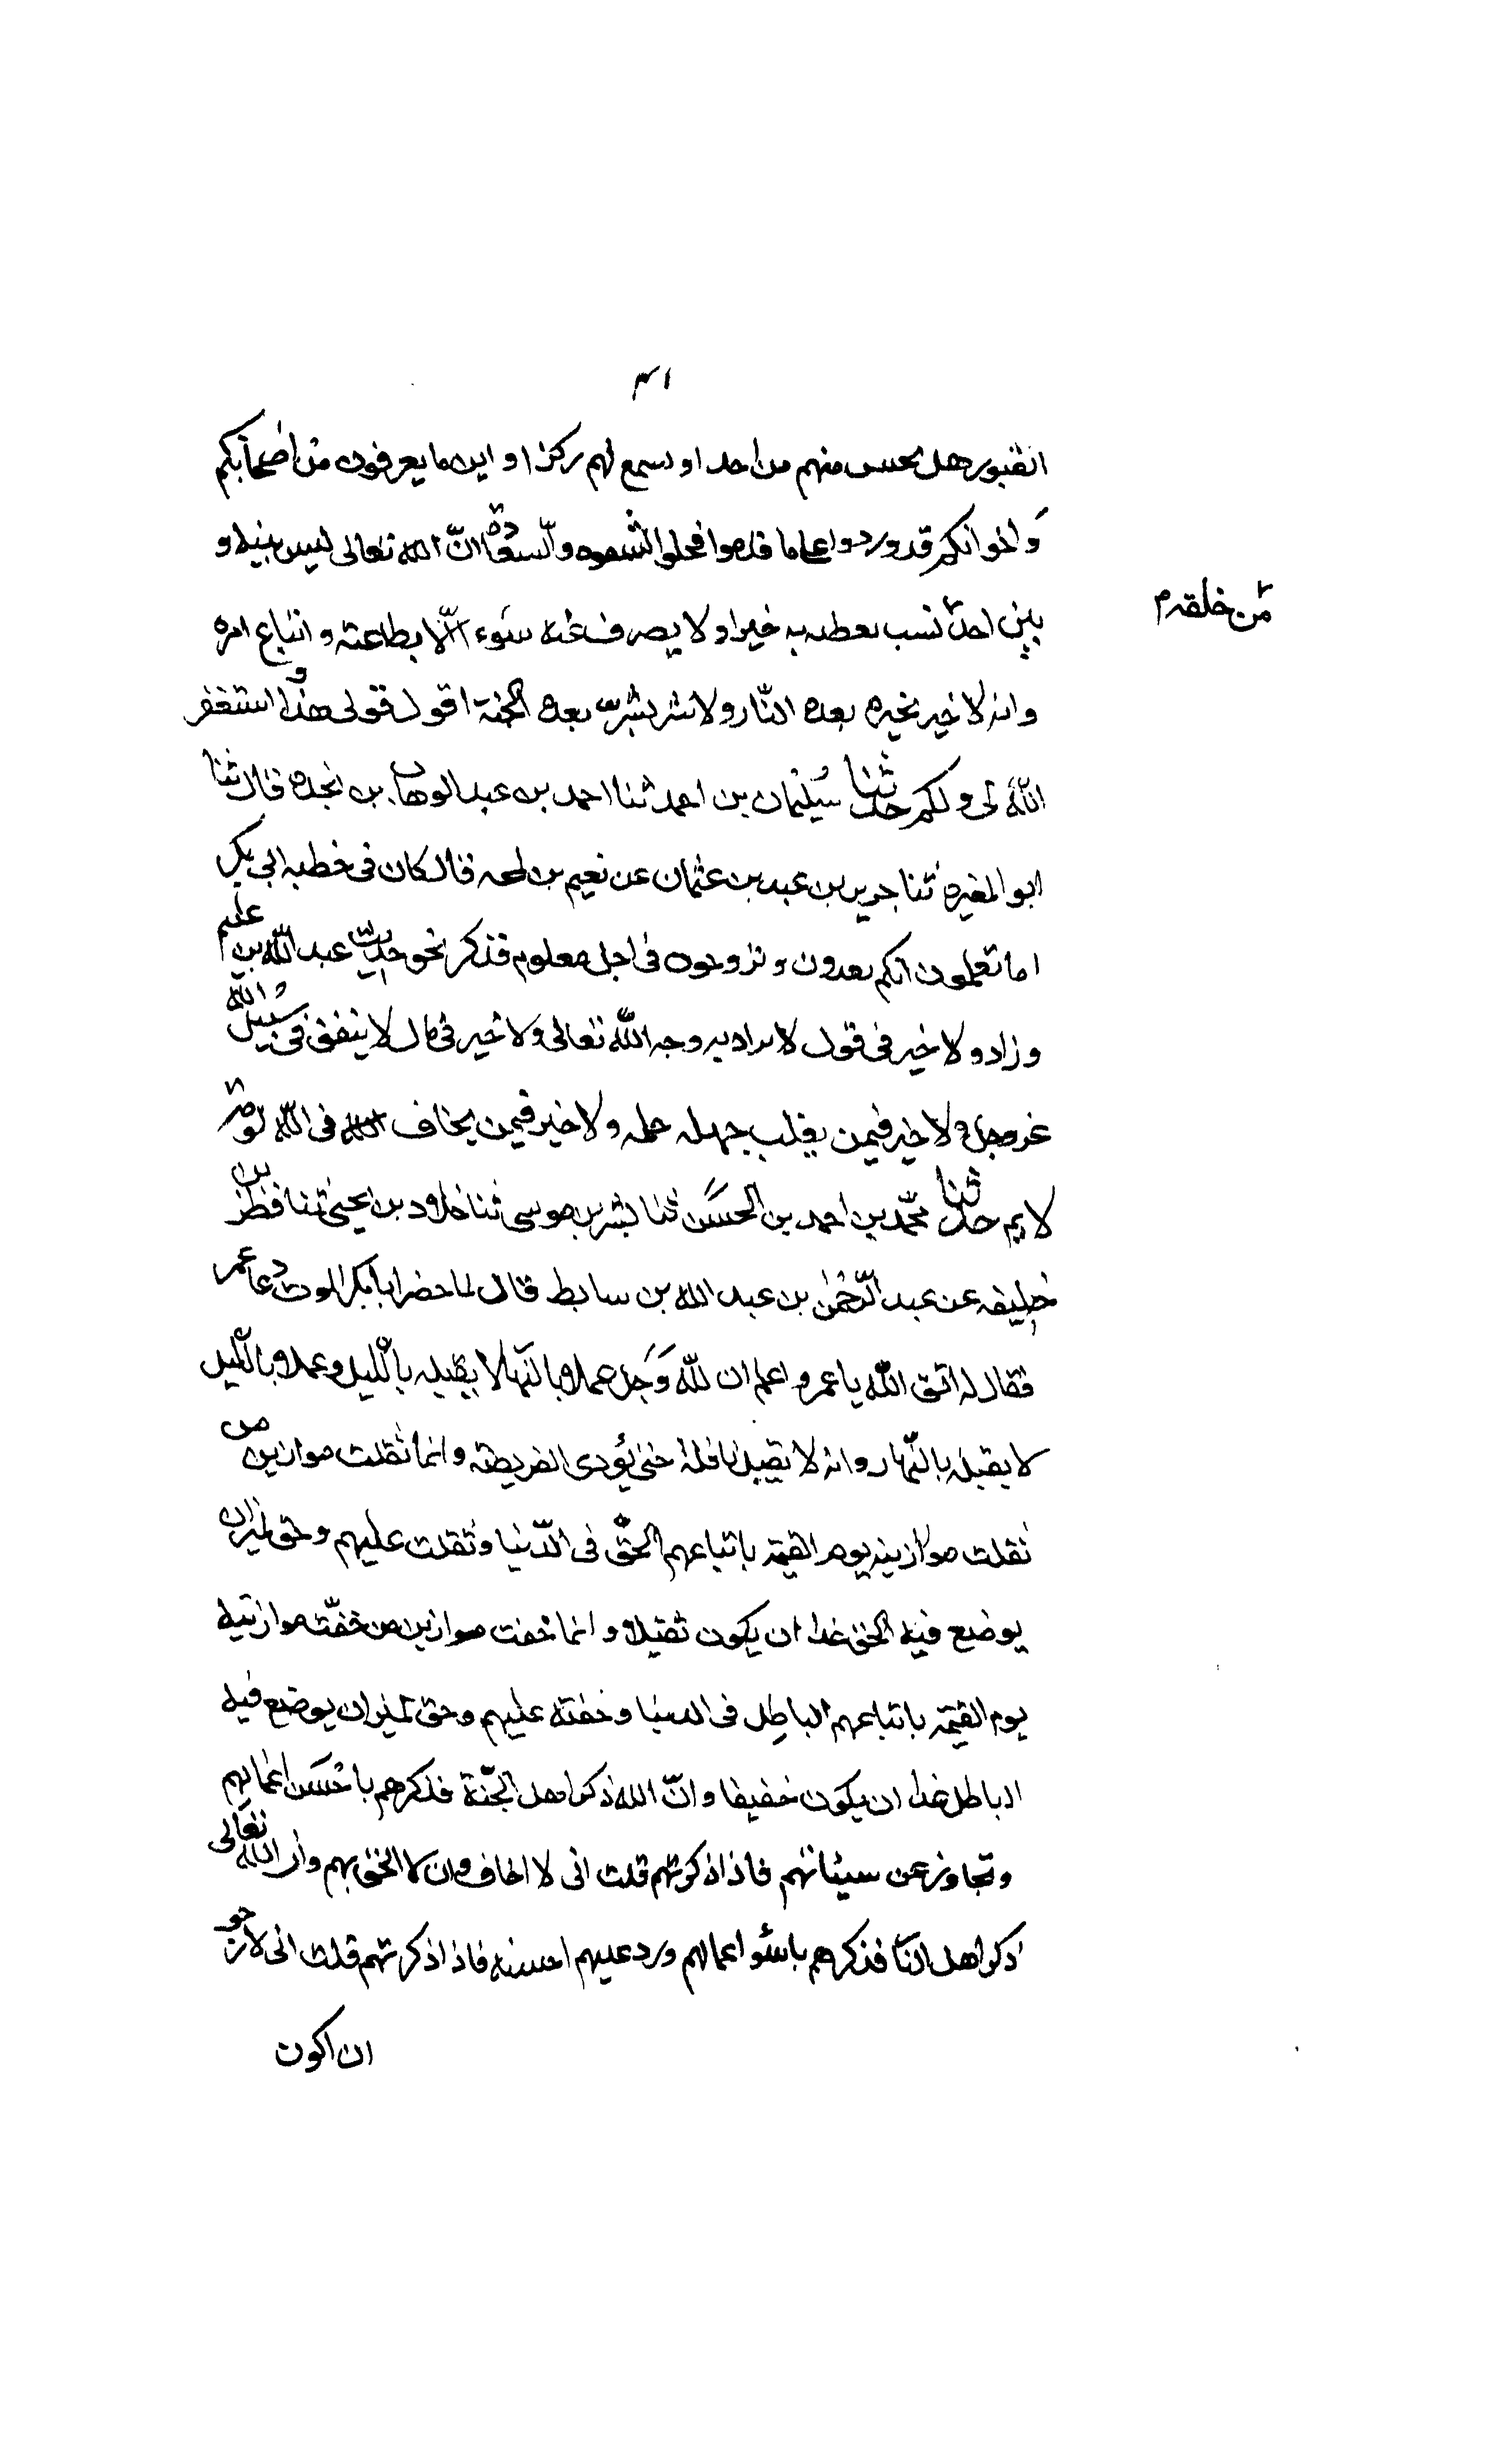 ٣١
القبور هل يحس منهم من احد او يسمع لهم ركزا و اين ما يعرفون من اصحابكم
و اخوانكم قد وردوا على ما قدموا فحلوا الشقوه والسعادة انّ الله تعالى ليس بينه و
بين احد من خلقه نسب يعطيه به خيرا و لا يصرف عنه سوء الّا بطاعته و اتباع امره
وانه لا خير بخيره بعده النّار و لا شر بشرّ بعده الجنة اقول قولى هذا و استغفر
الله لى ولكم حدثنا سليمان بن احمد ثنا احمد بن عبد الوهاب بن نجده قال ثنا
ابو المغيره ثنا جرير بن عبد بن عثمان عن نعيم بن لمحه قال كان فى خطبه ابى بكر
اما تعلمون انكم تغدون و تروحون فى اجل معلوم فذكر نحو حديث عبد الله بن عليم
وزاد و لا خير فى قول لا يراد به وجه الله تعالى ولا خير فى مال لا ينفق فى سبيل الله
عز وجل و لا خير فيمن يغلب جهله حلمه و لا خير فيمن يخاف فى الله لومة
لايم حدثنا محمّد بن احمد بن الحسن ثنا بشر بن موسى ثنا خلاد بن يحيى ثنا فطر بن
خليفه عن عبد الرّحمٰن بن عبد الله بن سابط قال لما حضر ابا بكر الموت دعا عمر
فقال له اتق الله يا عمر و اعلم ان لله وَجل عملا بالنّهار لا يقبله بالليل وعملا بالّليل
لا يقبله بالنّهار وانه لا يقبل نافلة حتى يؤدى الفريضة و انما ثقلت موازين من
ثقلت موازينه يوم القيمة باتباعهم الحقّ فى الدّنيا وثقلت عليهم وحق لميزان
يوضع فيه الحق غدا ان يكون ثقيلا و انما خفت موازين من خفّت موازينه
يوم القيمة باتباعهم الباطل فى الدنيا و خفته عليهم وحق لميزان يوضع فيه
الباطل غدا ان يكون خفيفا و انّ الله ذكر اهل الجنّة فذكرهم باحسن اعمالهم
و تجاوز عن سيئاتهم فاذا ذكرتهم قلت انى لا اخاف ان لا الحق بهم وان الله تعالى
ذكر اهل النار فذكرهم باسوء اعمالهم ورد عليهم احسنه فاذا ذكرتهم قلت انى لارجو
ان اكون